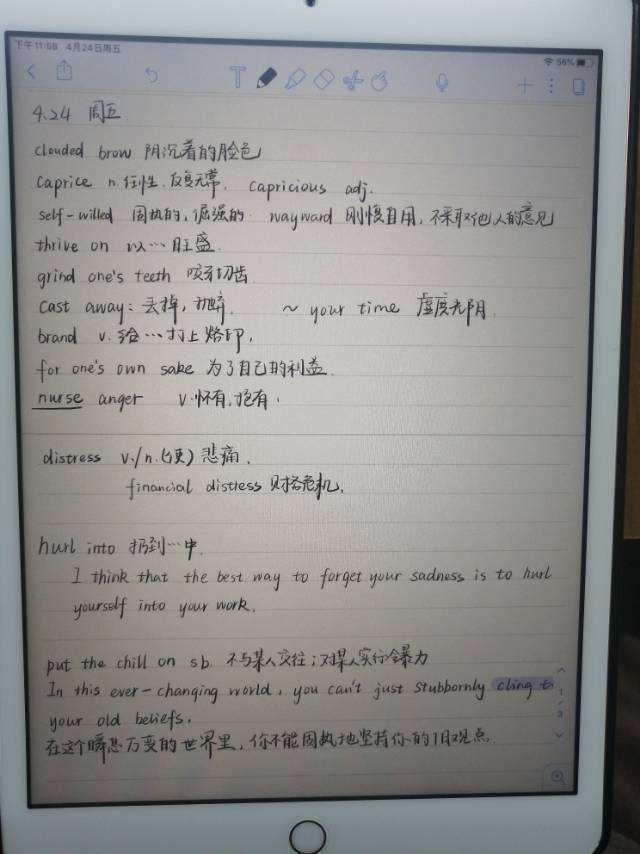 下午11:58 4月24日周五
56%
4.24 周五
clouded brow 阴沉着的脸色
caprice n.任性.反复无常. capricious adj.
self-willed 固执的,倔强的. wayward 刚愎自用,不采取他人的意见
thrive on 以…旺盛.
grind one's teeth 咬牙切齿
cast away:丢掉,抛弃. ~ your time 虚度光阴.
brand v.给…打上烙印.
for one's own sake 为了自己的利益.
nurse anger v.怀有,抱有.
distress v./n.(使)悲痛.
financial distress 财务危机.
hurl into 扔到…中.
I think that the best way to forget your sadness is to hurl
yourself into your work.
put the chill on sb. 不与某人交往;对某人实行冷暴力
In this ever-changing world, you can't just stubbornly cling to
your old beliefs.
在这个瞬息万变的世界里,你不能固执地坚持你的旧观点.
1/3